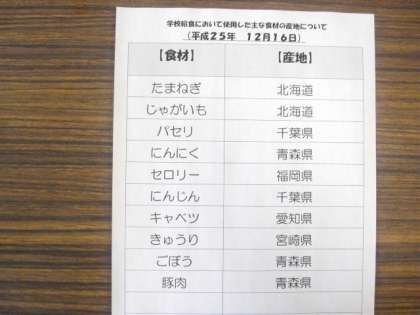 学校給食において使用した主な食材の産地について
（平成２５年　１２月１６日）
【食材】　【産地】
たまねぎ　北海道
じゃがいも　北海道
パセリ　千葉県
にんにく　青森県
セロリー　福岡県
にんじん　千葉県
キャベツ　愛知県
きゅうり　宮崎県
ごぼう　青森県
豚肉　青森県